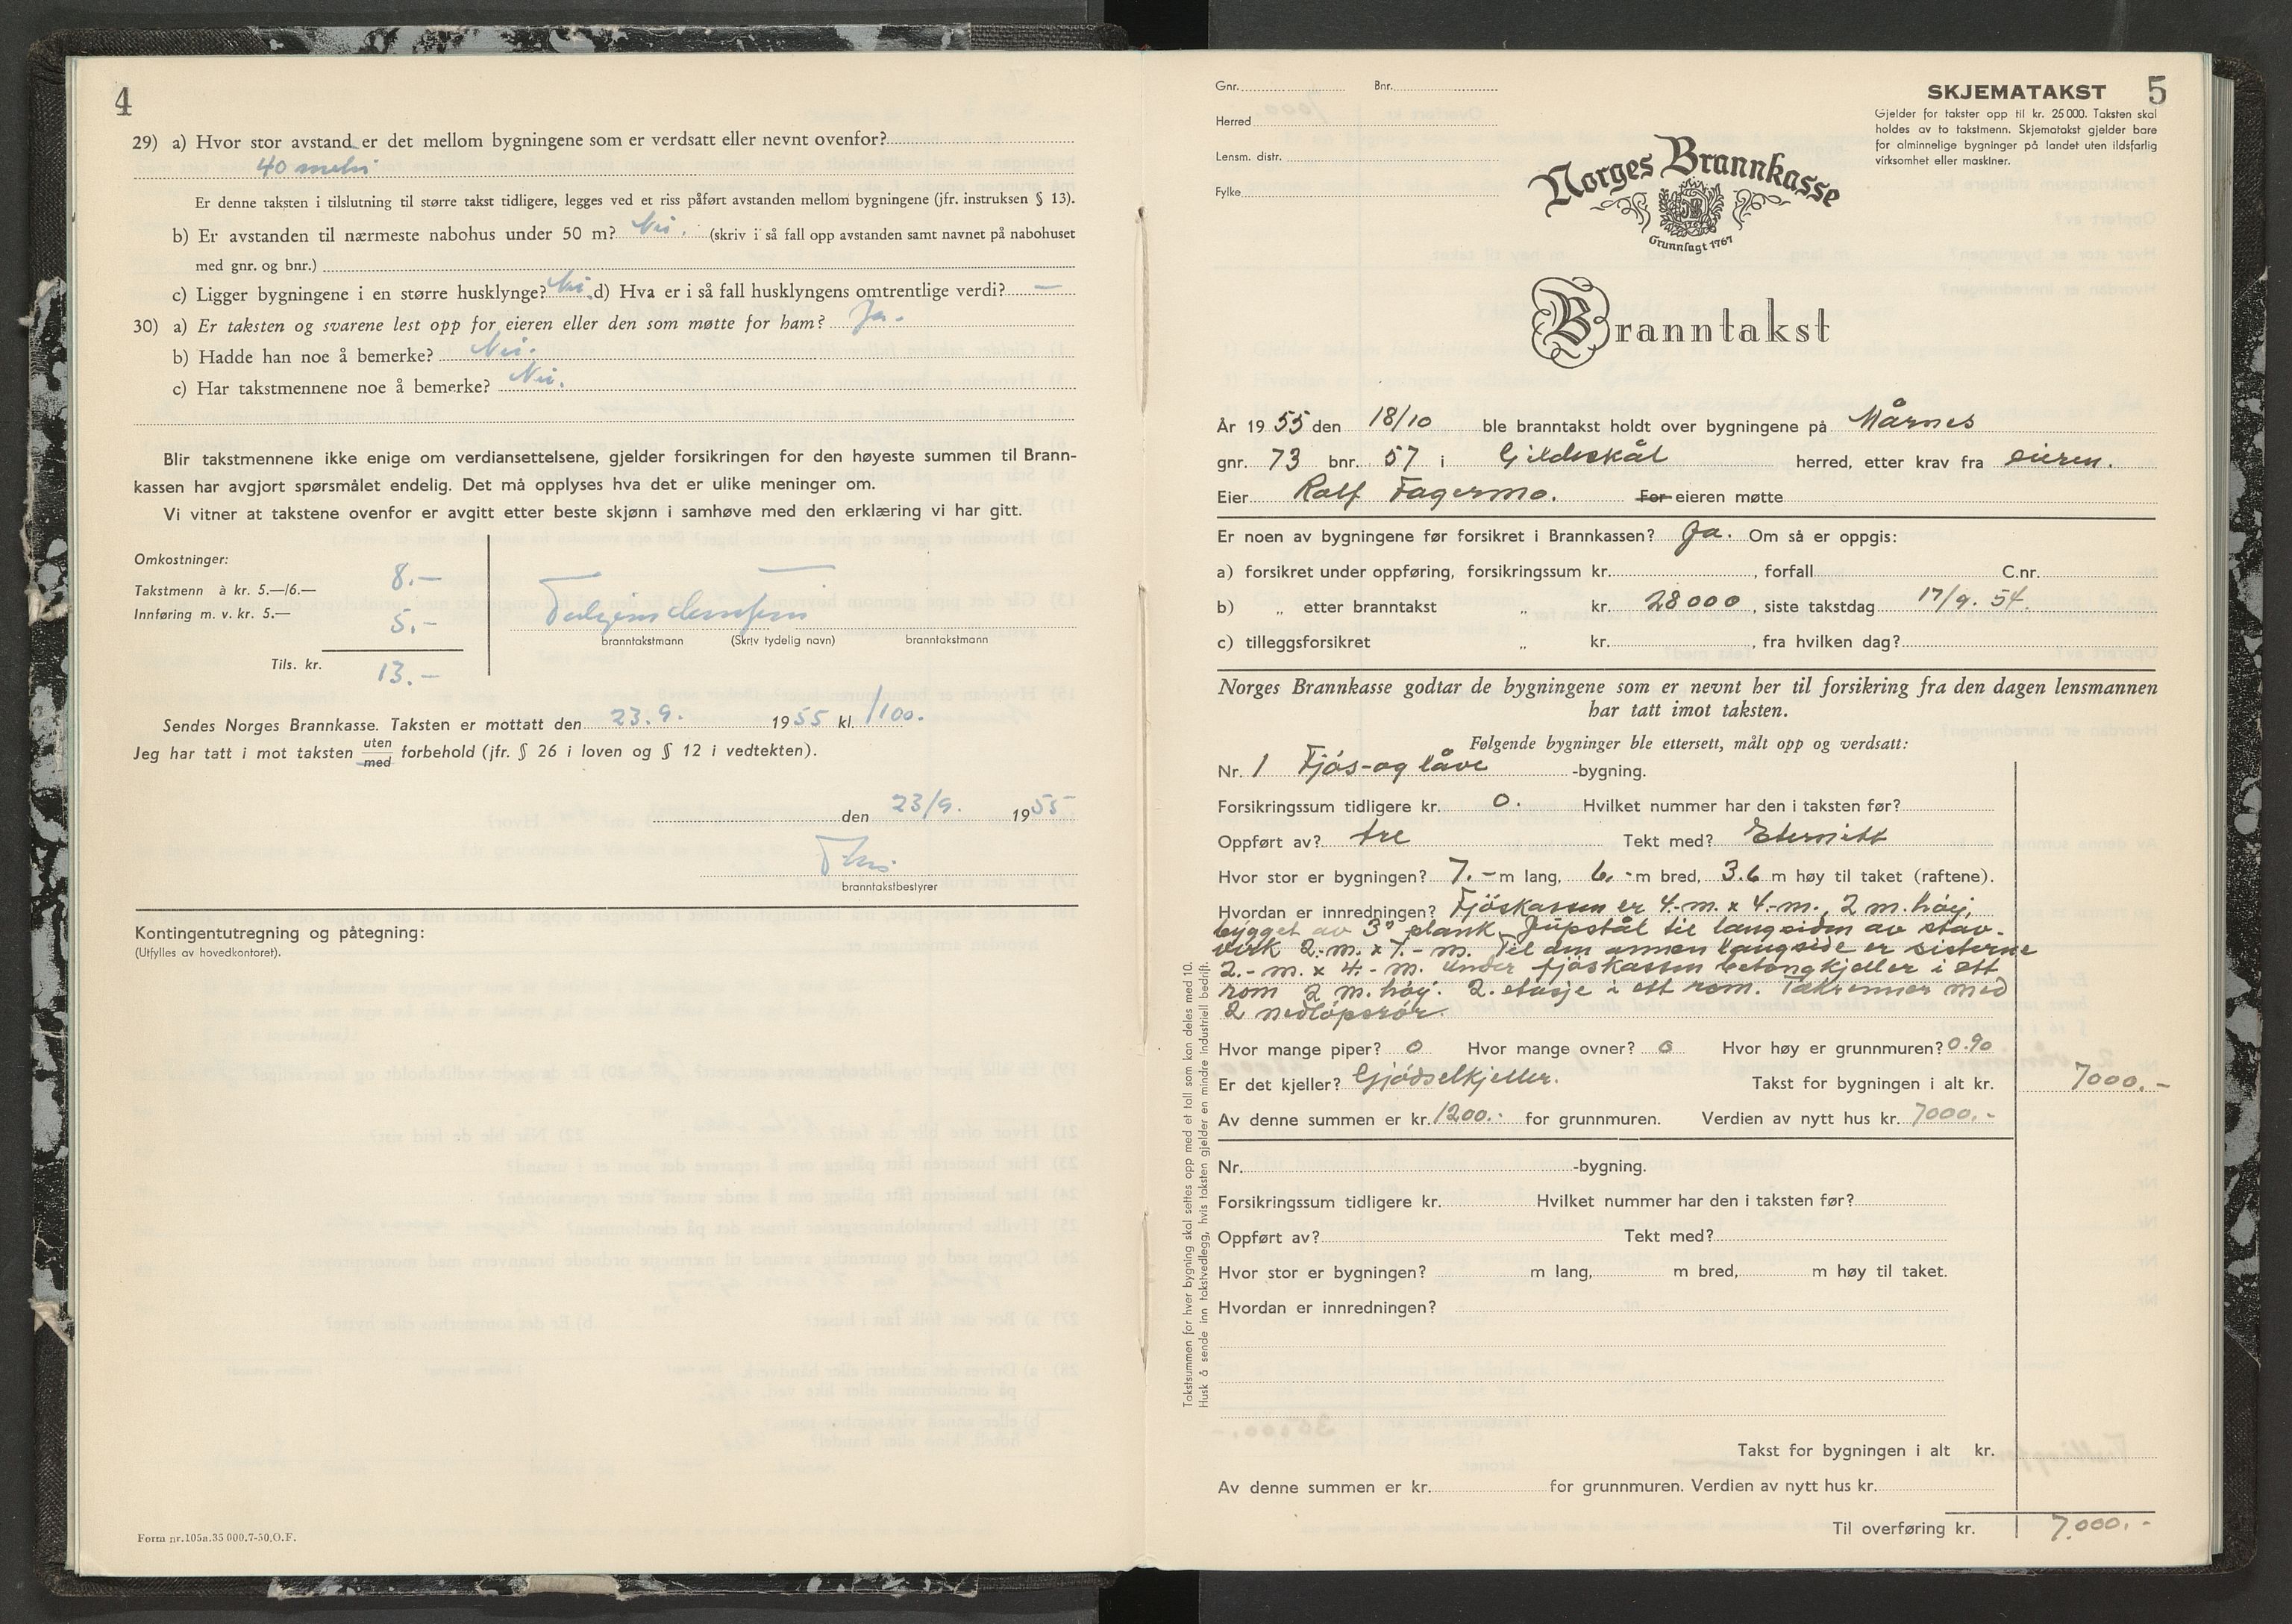 4
29) a) Hvor stor avstand er det mellom bygningene som er verdsatt eller nevnt ovenfor?
40 meter
Er denne taksten i tilslutning til større takst tidligere, legges ved et riss påført avstanden mellom bygningene (jfr. instruksen § 13).
b) Er avstanden til nærmeste nabohus under 50 m? Nei. (skriv i så fall opp avstanden samt navnet på nabohuset
med gnr. og bnr.)
c) Ligger bygningene i en større husklynge? Nei. d) Hva er i så fall husklyngens omtrentlige verdi? —
30) a) Er taksten og svarene lest opp for eieren eller den som møtte for ham? Ja.
b) Hadde han noe å bemerke? Nei.
c) Har takstmennene noe å bemerke? Nei.
Blir takstmennene ikke enige om verdiansettelsene, gjelder forsikringen for den høyeste summen til Brann-
kassen har avgjort spørsmålet endelig. Det må opplyses hva det er ulike meninger om.
Vi vitner at takstene ovenfor er avgitt etter beste skjønn i samhøve med den erklæring vi har gitt.
Omkostninger:
Takstmenn à kr. 5.—/6.— 8.—
Innføring m. v. kr. 5.— 5.-
branntakstmann (Skriv tydelig navn) branntakstmann
Tils. kr. 13.—
Sendes Norges Brannkasse. Taksten er mottatt den 23.9. 1955 kl. 1100.
Jeg har tatt i mot taksten uten/med forbehold (jfr. § 26 i loven og § 12 i vedtekten).
den 23/9. 1955
branntakstbestyrer
Kontingentutregning og påtegning:
(Utfylles av hovedkontoret).
Form nr.105a.35 000.7-50.O.F.
Gnr. Bnr.
Herred
Lensm. distr.
Fylke
SKJEMATAKST 5
Gjelder for takster opp til kr. 25 000. Taksten skal
holdes av to takstmenn. Skjematakst gjelder bare
for alminnelige bygninger på landet uten ildsfarlig
virksomhet eller maskiner.
Norges Brannkasse
Grunnlagt 1767
Branntakst
År 1955 den 18/10 ble branntakst holdt over bygningene på Mårnes
gnr. 73 bnr. 57 i Gildeskål herred, etter krav fra eieren.
Eier Rolf Fagermo. For eieren møtte
Er noen av bygningene før forsikret i Brannkassen? Ja. Om så er oppgis:
a) forsikret under oppføring, forsikringssum kr. , forfall C.nr.
b) „ etter branntakst „ kr. 28000, siste takstdag 17/9. 54.
c) tilleggsforsikret „ kr. , fra hvilken dag?
Norges Brannkasse godtar de bygningene som er nevnt her til forsikring fra den dagen lensmannen
har tatt imot taksten.
Følgende bygninger ble ettersett, målt opp og verdsatt:
Nr. 1 Fjøs- og låve -bygning.
Forsikringssum tidligere kr. 0. Hvilket nummer har den i taksten før?
Oppført av? tre Tekt med? Eternitt
Hvor stor er bygningen? 7.- m lang, 6.- m bred, 3.6 m høy til taket (raftene).
Hvordan er innredningen? Fjøskassen er 4.-m. x 4.-m., 2 m. høy,
bygget av 3" plank. Jupstål til langsiden av stav-
verk 2.-m. x 7.-m. Til den annen langside er sisterne
2.-m. x 4.-m. Under fjøskassen betongkjeller i ett
rom 2 m. høy. 2. etasje i ett rom. Takrenner med
2 nedløpsrør.
Hvor mange piper? 0 Hvor mange ovner? 0 Hvor høy er grunnmuren? 0.90
Er det kjeller? Gjødselkjeller. Takst for bygningen i alt kr. 7000.-
Av denne summen er kr. 1200.- for grunnmuren. Verdien av nytt hus kr. 7000.-
Nr. -bygning.
Forsikringssum tidligere kr. Hvilket nummer har den i taksten før?
Oppført av? Tekt med?
Hvor stor er bygningen? m lang, m bred, m høy til taket.
Hvordan er innredningen?
Takst for bygningen i alt kr.
Av denne summen er kr. for grunnmuren. Verdien av nytt hus kr.
Til overføring kr. 7.000.-
Takstsummen for hver bygning skal settes opp med et tall som kan deles med 10.
Husk å sende inn takstvedlegg, hvis taksten gjelder en mindre industriell bedrift.